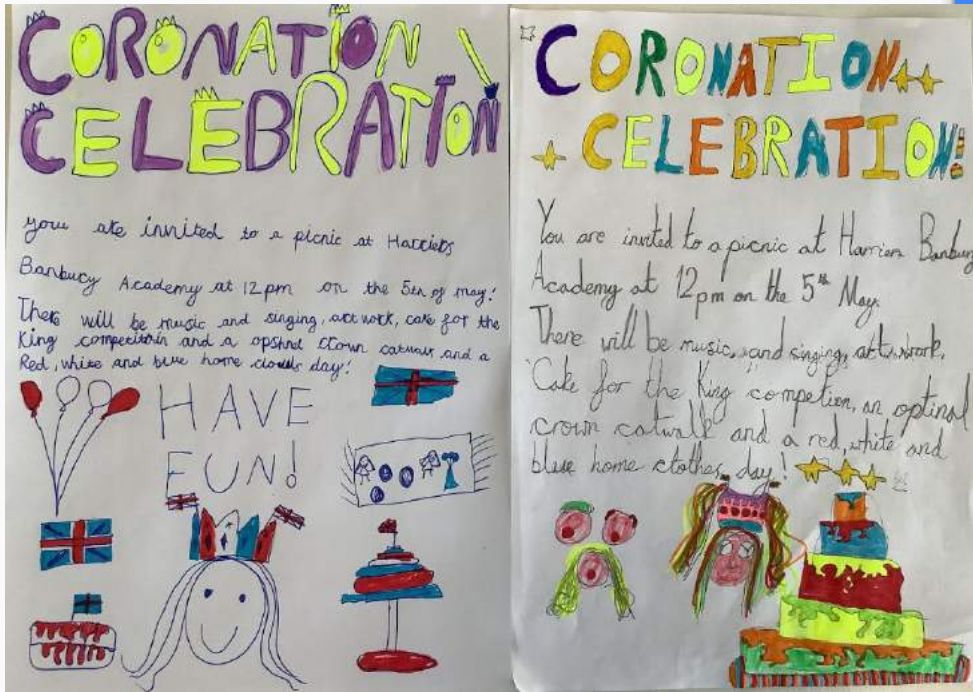 CORONATION
CELEBRATION
you are invited to a picnic at Harriers
Banbury Academy at 12pm on the 5th of may!
There will be music and singing, art work, cake for the
King competitoin and a opshnel crown catwalk and a
Red, white and blue home clouds day!
HAVE
FUN!
CORONATION
CELEBRATION!
You are invited to a picnic at Harriers Banbury
Academy at 12pm on the 5th May.
There will be music, and singing, art work,
"Cake for the King" competion, an optinal
crown catwalk and a red, white and
blue home clothes day!